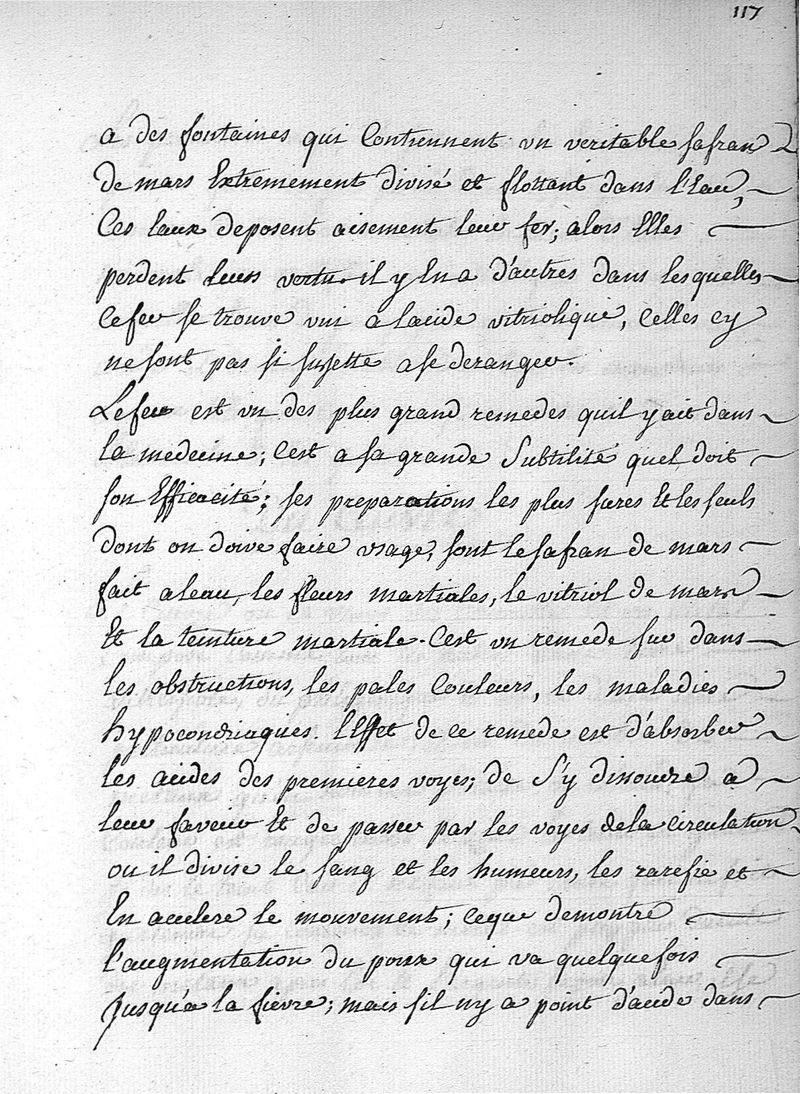 117
a des fontaines qui Contiennent un veritable safran
de mars Extremement divisé et flottant dans l'Eau,
Ces Eaux deposent aisement leur fer; alors Elles
perdent leurs vertu. il y En a d'autres dans lesquelles
Ce fer se trouve uni a lacide vitriolique, Celles cy
ne sont pas si sujette a se deranger.
Le fer est un des plus grand remedes quil y ait dans
la medecine; C'est a sa grande Subtilité quel doit
son Efficacité; ses preparations les plus sures Et les seuls
dont on doive faire usage, sont le safran de mars
fait a leau, les fleurs martiales, le vitriol de mars
Et la teinture martiale. C'est un remede sur dans
les obstructions, les pales Couleurs, les maladies
hypocondriaques. l'Effet de ce remede est d'absorber
les acides des premieres voyes; de s'y dissoudre a
leur faveur Et de passer par les voyes de la circulation
ou il divise le sang et les humeurs, les rarefie et
En accelere le mouvement; Ceque demontre
l'augmentation du poux qui va quelque fois
Jusqu'a la fievre; mais s'il ny a point d'acide dans